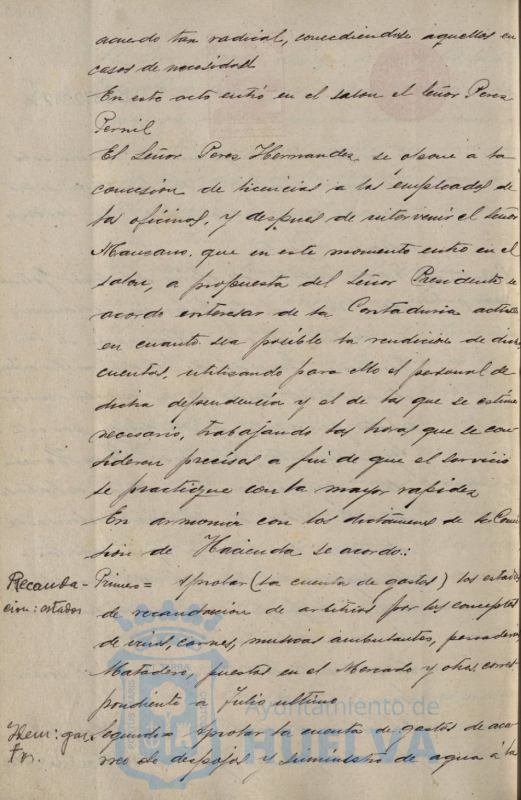 acuerdo tan radical, concediendose aquellas en
casos de necesidad
En este acto entró en el salon el Señor Perez
Pernil
El Señor Perez Hernandez se opone á la
concesión de licencias á los empleados de
las oficinas, y despues de intervenir el Señor
Manzano, que en este momento entro en el
salon, a propuesta del Señor Presidente se
acordo interesar de la Contaduria active
en cuanto sea posible la rendición de dichas
cuentas, utilizando para ello el personal de
dicha dependencia y el de las que se estime
necesario, trabajando las horas que se con
sideren precisas a fin de que el servicio
se practique con la mayor rapidez
En armonia con los dictámenes de la Comi
sión de Hacienda se acordo:
Recauda-
cion: estados
Primero = Aprobar (la cuenta de gastos) los estados
de recaudación de arbitrios por los conceptos
de vinos, carnes, musicas ambulantes, pescaderia,
Matadero, puestos en el Mercado y otros corres
pondiente a Julio ultimo
Idem: gas-
tos.
Segundo = Aprobar la cuenta de gastos de aca
rreo de despojos y suministro de agua á la
Ayuntamiento de
HUELVA